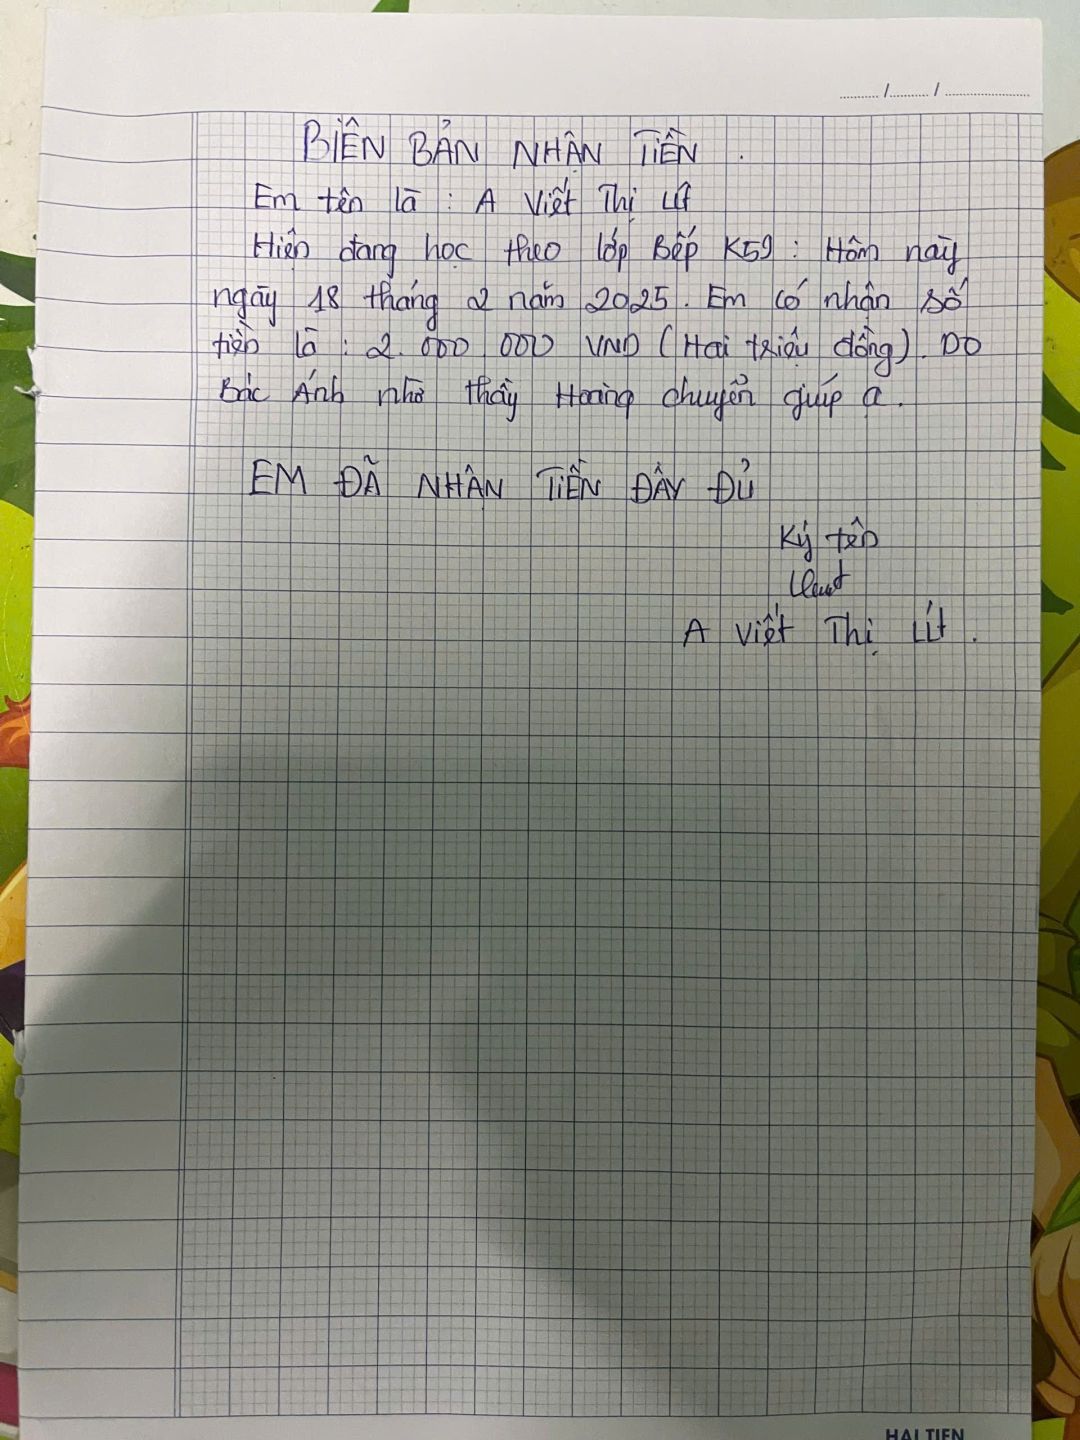 BIÊN BẢN NHẬN TIỀN .
Em tên là : A Viết Thị Lít
Hiện đang học theo lớp Bếp K59 : Hôm nay
ngày 18 tháng 2 năm 2025. Em có nhận số
tiền là : 2.000 000 VND (Hai triệu đồng). DO
Bác Ánh nhờ thầy Hoàng chuyển giúp ạ.
EM ĐÃ NHẬN TIỀN ĐẦY ĐỦ
Ký tên
A Viết Thị Lít .
HẢI TIẾN